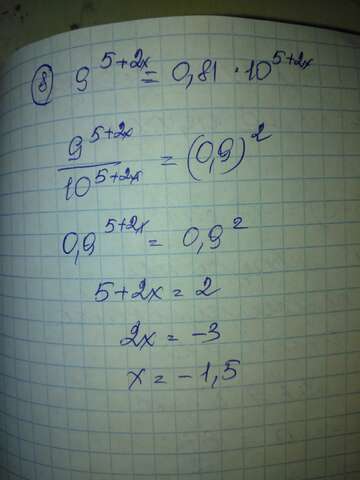 8 9^(5+2x) = 0,81 · 10^(5+2x)
9^(5+2x) / 10^(5+2x) = (0,9)^2
0,9^(5+2x) = 0,9^2
5+2x = 2
2x = -3
x = -1,5